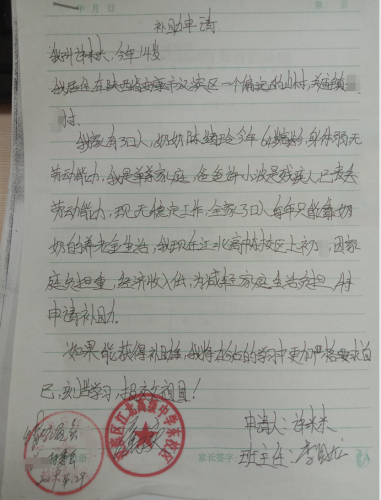 年 月 日
补助申请
我叫许米米，今年14岁
我居住在陕西省安康市汉滨区一个偏远的山村，关迠镇
村。
我家有3口人，奶奶陈绪玲今年6，身体弱无
劳动能力，我是单亲家庭，爸爸许小波是残疾人已丧失
劳动能力，现无稳定工作，全家3口人每年只能靠奶
奶的养老金生活，我现在江北高中东校区上初，因家
庭负担重，经济收入低，为减轻家庭生活负担，
申请补助。
如果能获得补助，我将在的学习中更加严格要求自
己，刻苦学习，报效祖国！
申请人：许米米
汉滨区江北高级中学东校区
家长签字：
班主任：李